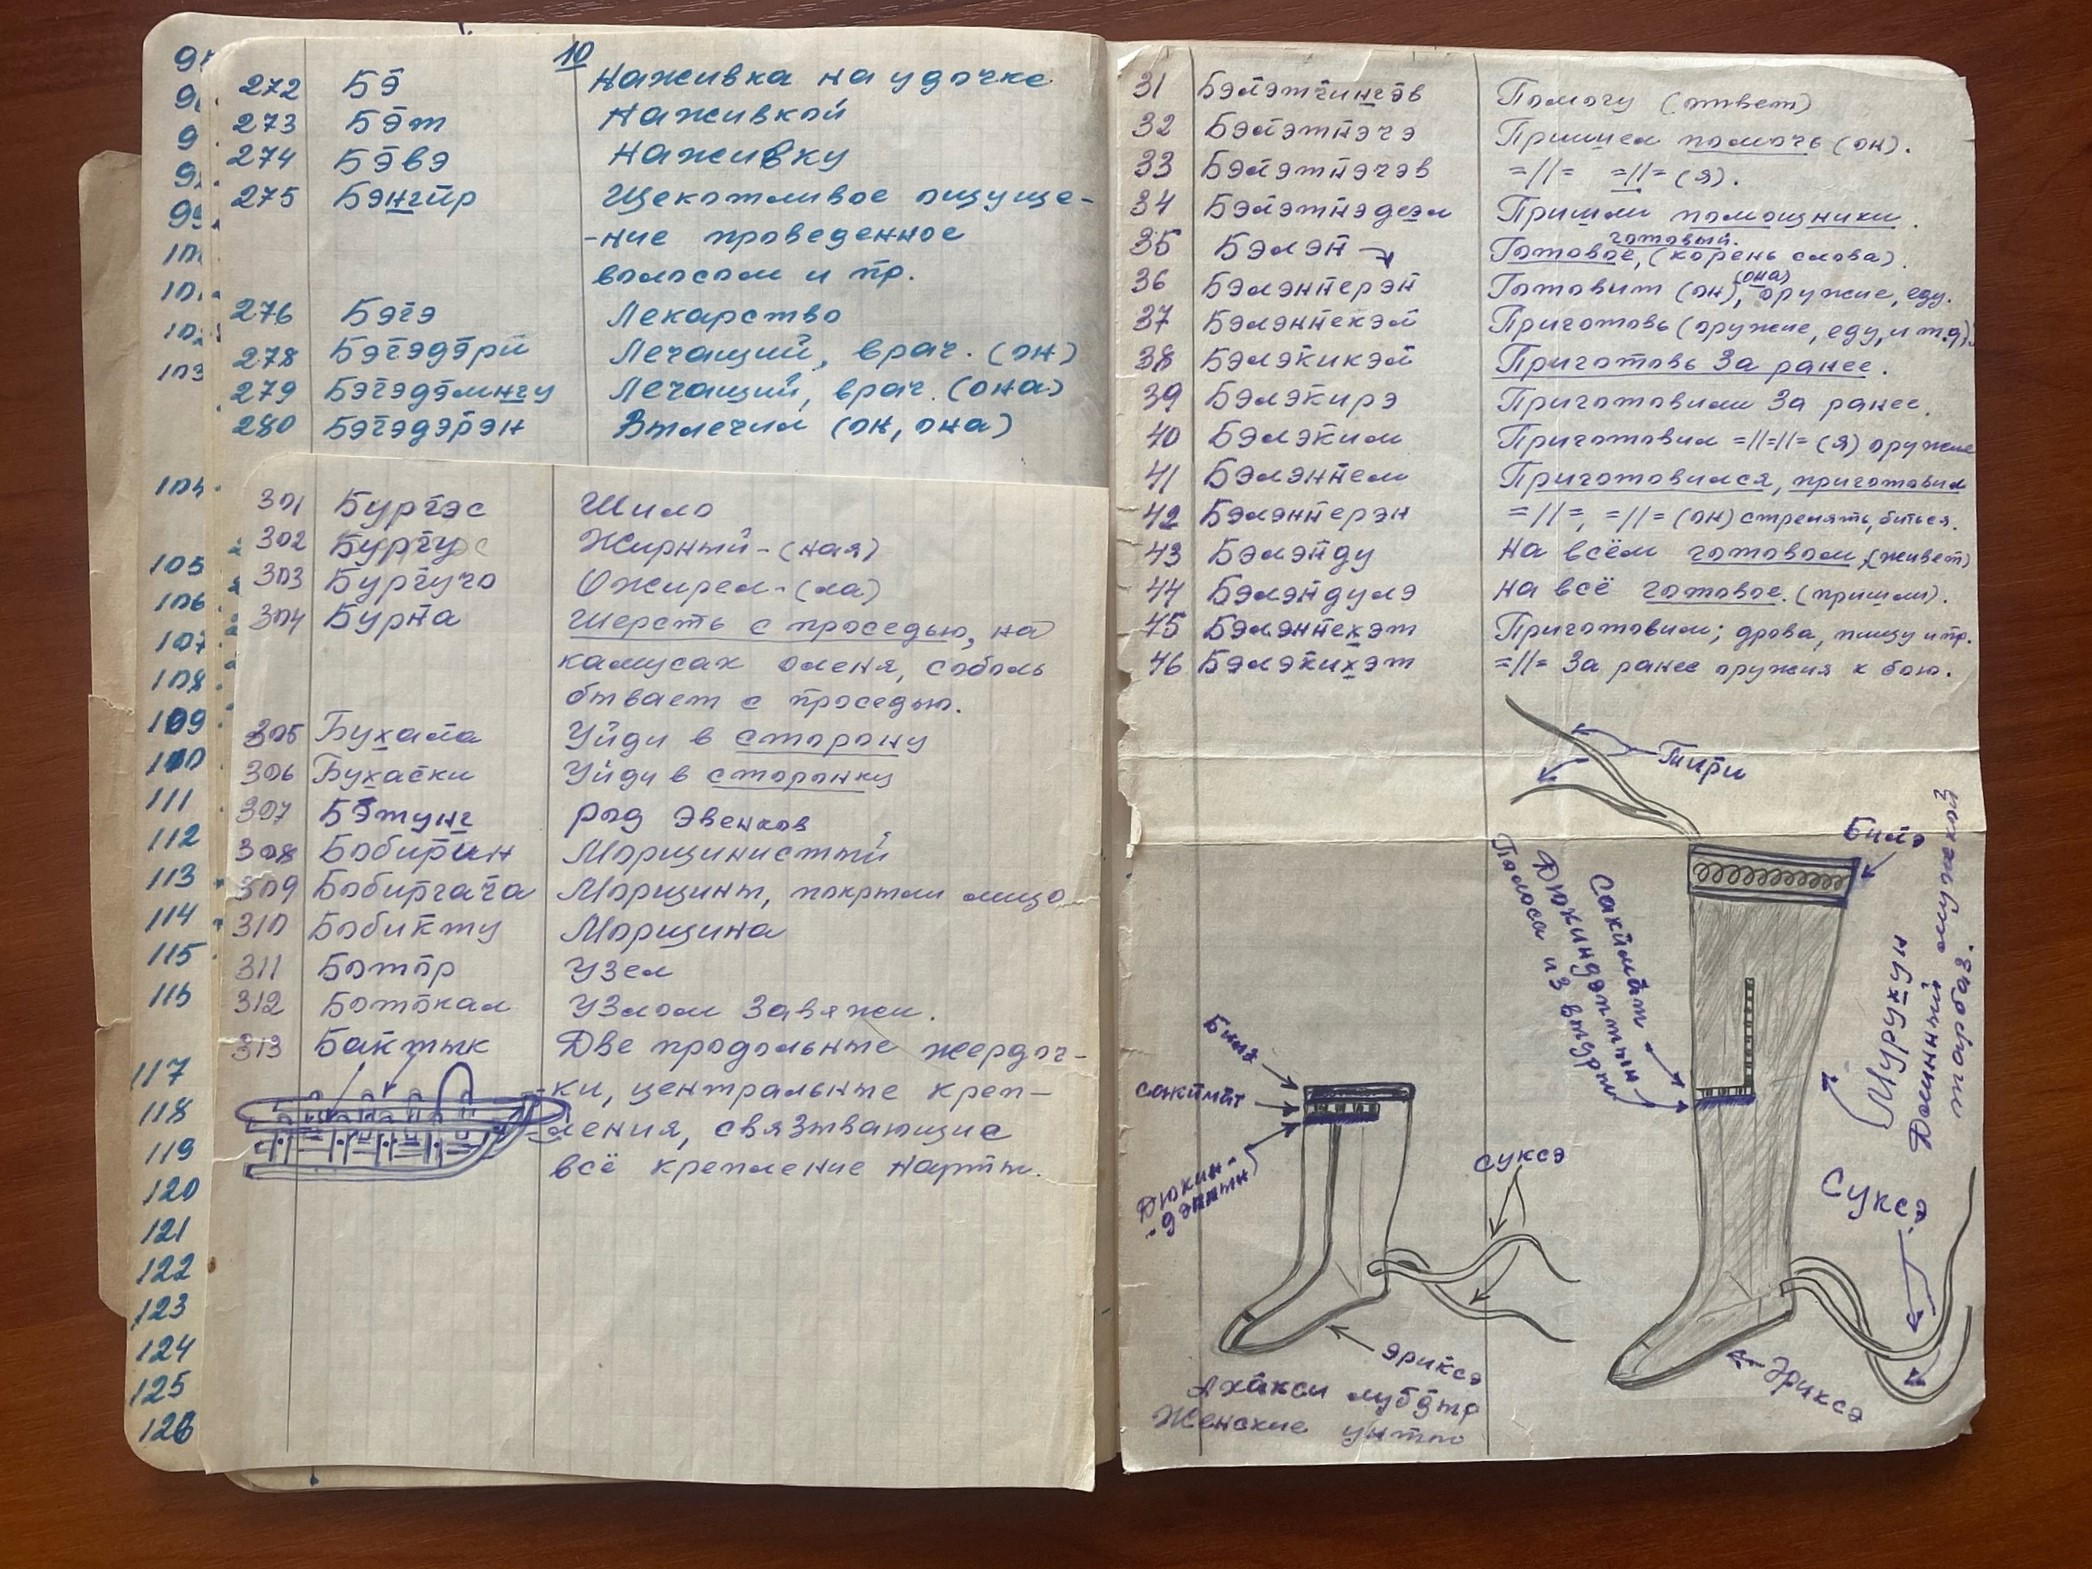 10
272 Бэ̄ Наживка на удочке
273 Бэ̄т Наживкой
274 Бэ̄вэ Наживку
275 Бэнгӣр Щекотливое ощуще-
-ние проведенное
волосом и пр.
276 Бэгэ Лекарство
278 Бэгэдэ̄рӣ Лечащий, врач. (он)
279 Бэгэдэ̄мнгу Лечащий, врач. (она)
280 Бэгэдэ̄рэн Вылечил (он, она)
301 Бургэс Шило
302 Бургу Жирный-(ная)
303 Бургучо Ожирел-(ла)
304 Бурпа Шерсть с проседью, на
камусах оленя, соболь
бывает с проседью.
305 Бухала Уйди в сторону
306 Бухаски Уйди в сторонку
307 Бэ̄тунг род эвенков
308 Бобирин Морщинистый
309 Бобиргача Морщины, покрыли лицо
310 Бобикту Морщина
311 Ботор Узел
312 Ботокал Узлом завяжи.
313 Бактык Две продольные жердоч-
ки, центральные креп-
ления, связывающие
всё крепление нарты.
9
104
105
106
107
108
109
110
111
112
113
114
115
116
117
118
119
120
121
122
123
124
125
126
31 Бэлэтчингэ̄в Помогу (ответ)
32 Бэлэтнэчэ Пришел помочь (он).
33 Бэлэтнэчэв =//= =//= (я).
34 Бэлэтнэдеэл Пришли помощники.
готовый.
35 Бэлэн Готовое, (корень слова).
(она)
36 Бэлэннерэн Готовит (он), оружие, еду.
37 Бэлэннекэл Приготовь (оружие, еду, и т.д).
38 Бэлэкикэл Приготовь За ранее.
39 Бэлэкирэ Приготовили За ранее.
40 Бэлэким Приготовил =//=//= (я) оружие
41 Бэлэннем Приготовился, приготовил
42 Бэлэннерэн =//=, =//= (он) стрелять, биться.
43 Бэлэнду На всём готовом, (живет)
44 Бэлэндулэ На всё готовое. (пришли).
45 Бэлэннехэт Приготовим; дрова, пищу и пр.
46 Бэлэкихэт =//= За ранее оружия к бою.
Тири
Билэ
Сакимат
Дюкиндэптын
Полоса из выдры
Мурукун
Длинный мужской
торбаз.
Суксэ
Эриксэ
Билэ
сакимат
Дюкин-
-дэптын
суксэ
эриксэ
Ахакси
Женские унты